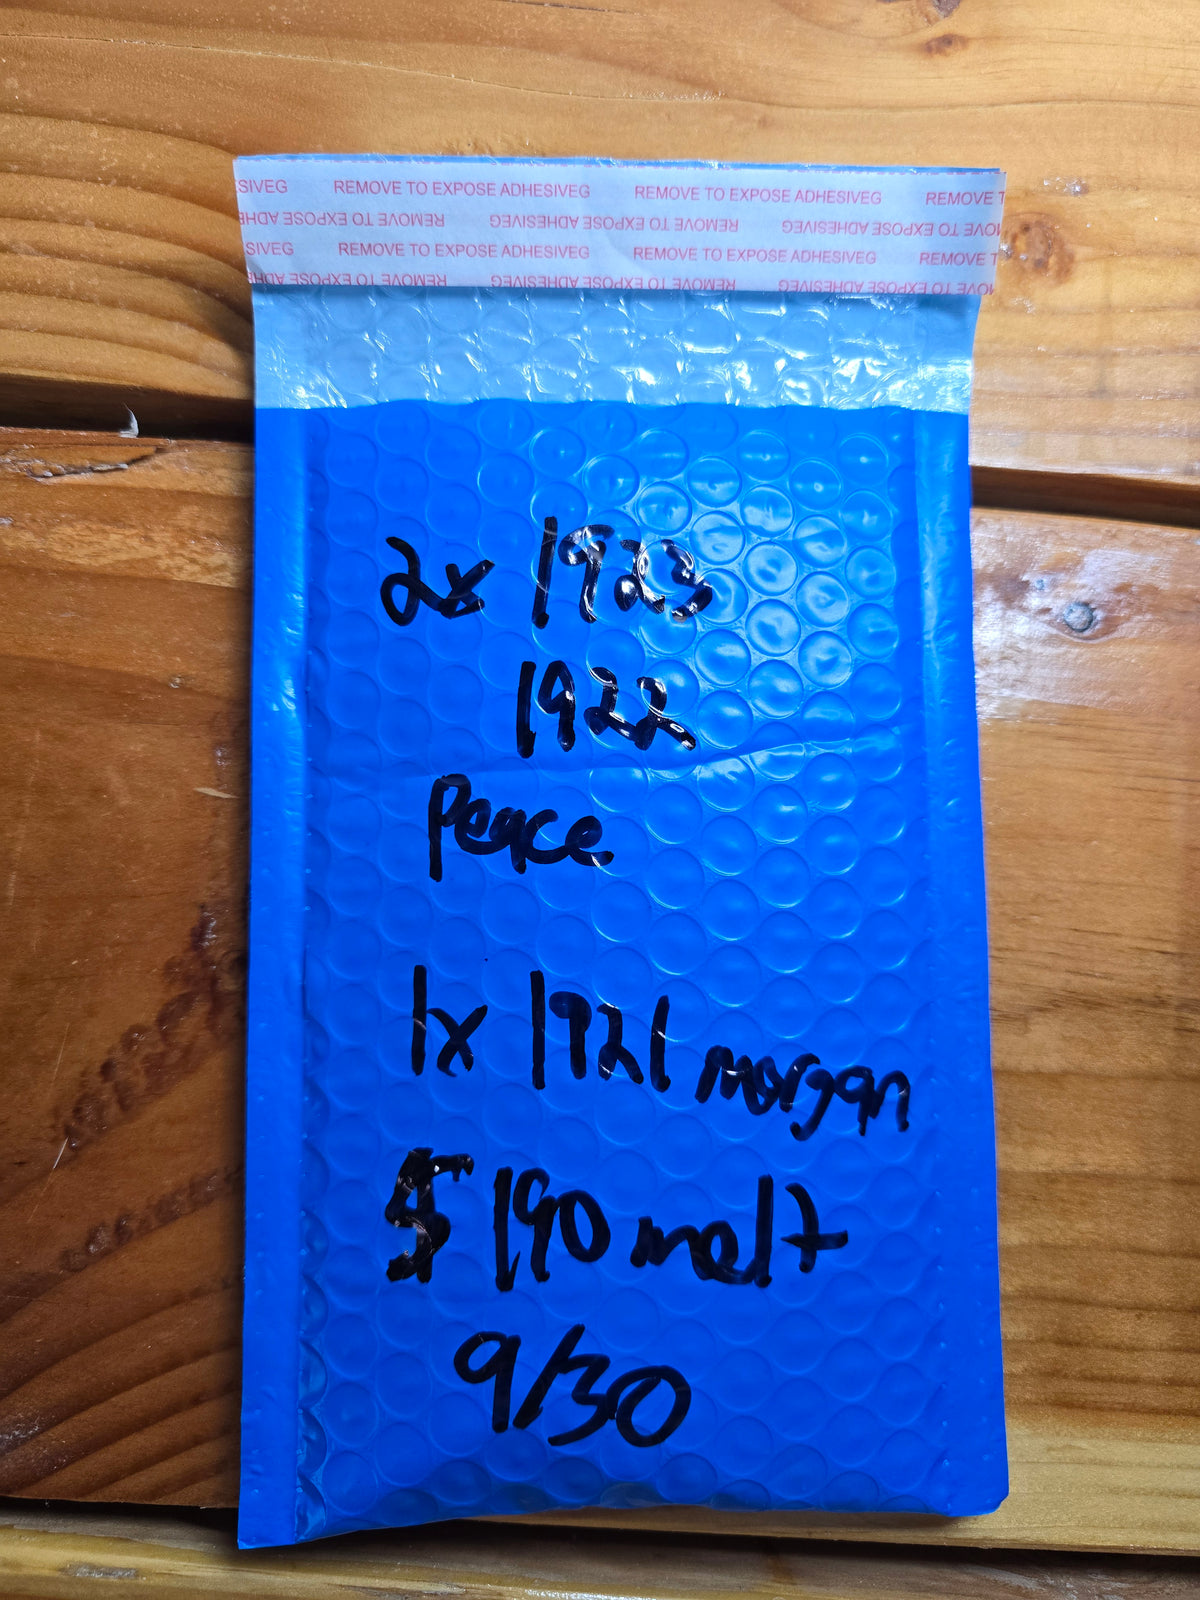 SIVEG REMOVE TO EXPOSE ADHESIVEG REMOVE TO EXPOSE ADHESIVEG REMOVE T
MOVE TO EXPOSE ADHESIVEG REMOVE TO EXPOSE ADHESIVEG REMOVE TO EXPOSE ADHE
SIVEG REMOVE TO EXPOSE ADHESIVEG REMOVE TO EXPOSE ADHESIVEG REMOVE T
MOVE TO EXPOSE ADHESIVEG REMOVE TO EXPOSE ADHESIVEG REMOVE TO EXPOSE ADHE
2x 1923
1922
Peace
1x 1921 morgan
$ 190 melt
9/30